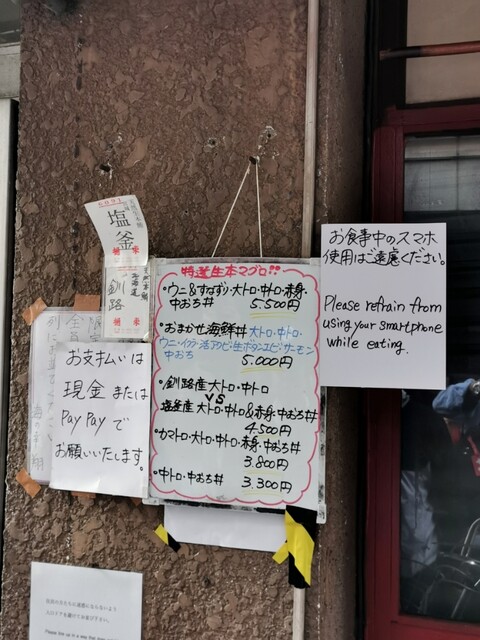 塩釜
釧路
北海道
特選生本マグロ!!
・ウニ&すなずり・大トロ・中トロ・赤身
中おち丼
5.500円
・おまかせ海鮮丼 大トロ・中トロ・
ウニ・イクラ・活アワビ・生ボタンエビ・サーモン
中おち
5.000円
・釧路産大トロ・中トロ
VS
塩釜産大トロ・中トロ&赤身中おち丼
4.500円
・カマトロ・大トロ・中トロ・赤身・中おち丼
3.800円
・中トロ・中おち丼
3.300円
お食事中のスマホ
使用はご遠慮ください。
Please refrain from
using your smartphone
while eating.
お支払いは
現金または
PayPayで
お願いいたします。